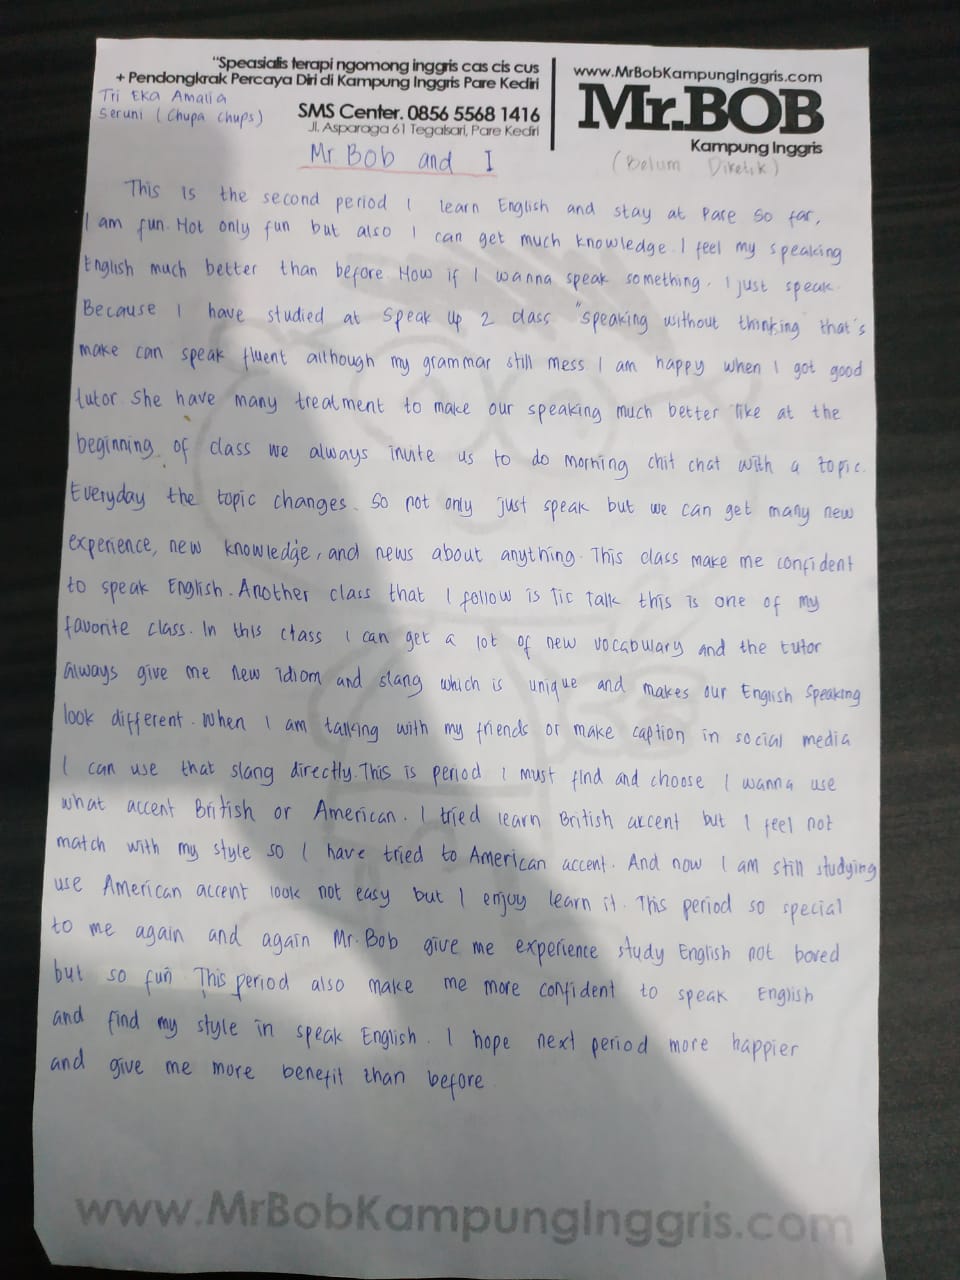 "Speasialis terapi ngomong inggris cas cis cus
+ Pendongkrak Percaya Diri di Kampung Inggris Pare Kediri
SMS Center. 0856 5568 1416
Jl. Asparaga 61 Tegalsari, Pare Kediri
www.MrBobKampungInggris.com
Mr.BOB
Kampung Inggris
Tri Eka Amalia
Seruni (Chupa Chups)
Mr. Bob and I
(Belum Diketik)
This is the second period I learn English and stay at Pare so far,
I am fun. Not only fun but also I can get much knowledge. I feel my speaking
English much better than before. Now if I wanna speak something. I just speak.
Because I have studied at Speak Up 2 class "Speaking without thinking" that's
make can speak fluent although my grammar still mess I am happy when I got good
tutor. She have many treatment to make our speaking much better like at the
beginning of class we always invite us to do morning chit chat with a topic.
Everyday the topic changes. So not only just speak but we can get many new
experience, new knowledge, and news about anything. This class make me confident
to speak English. Another class that I follow is Tic Talk this is one of my
favorite class. In this class I can get a lot of new vocabulary and the tutor
always give me new idiom and slang which is unique and makes our English speaking
look different. When I am talking with my friends or make caption in social media
I can use that slang directly. This is period I must find and choose I wanna use
what accent British or American. I tried learn British accent but I feel not
match with my style so I have tried to American accent. And now I am still studying
use American accent look not easy but I enjoy learn it. This period so special
to me again and again Mr. Bob give me experience study English not bored
but so fun. This period also make me more confident to speak English
and find my style in speak English. I hope next period more happier
and give me more benefit than before.
www.MrBobKampungInggris.com